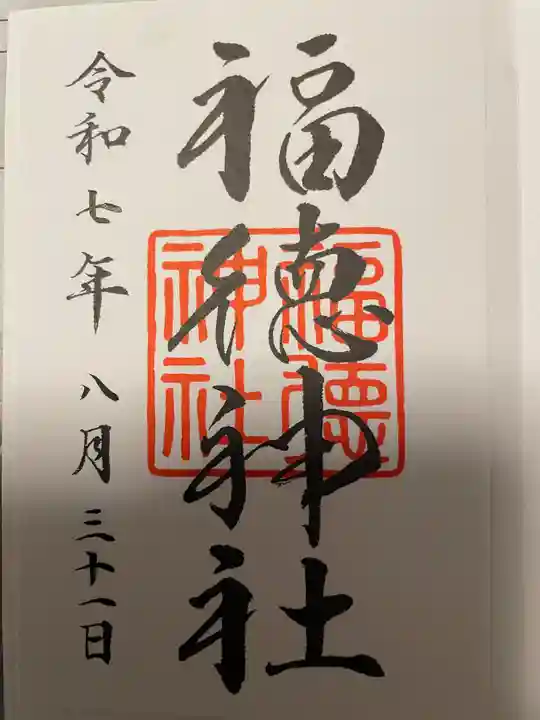 福徳神社
福徳神社
令和七年 八月三十一日